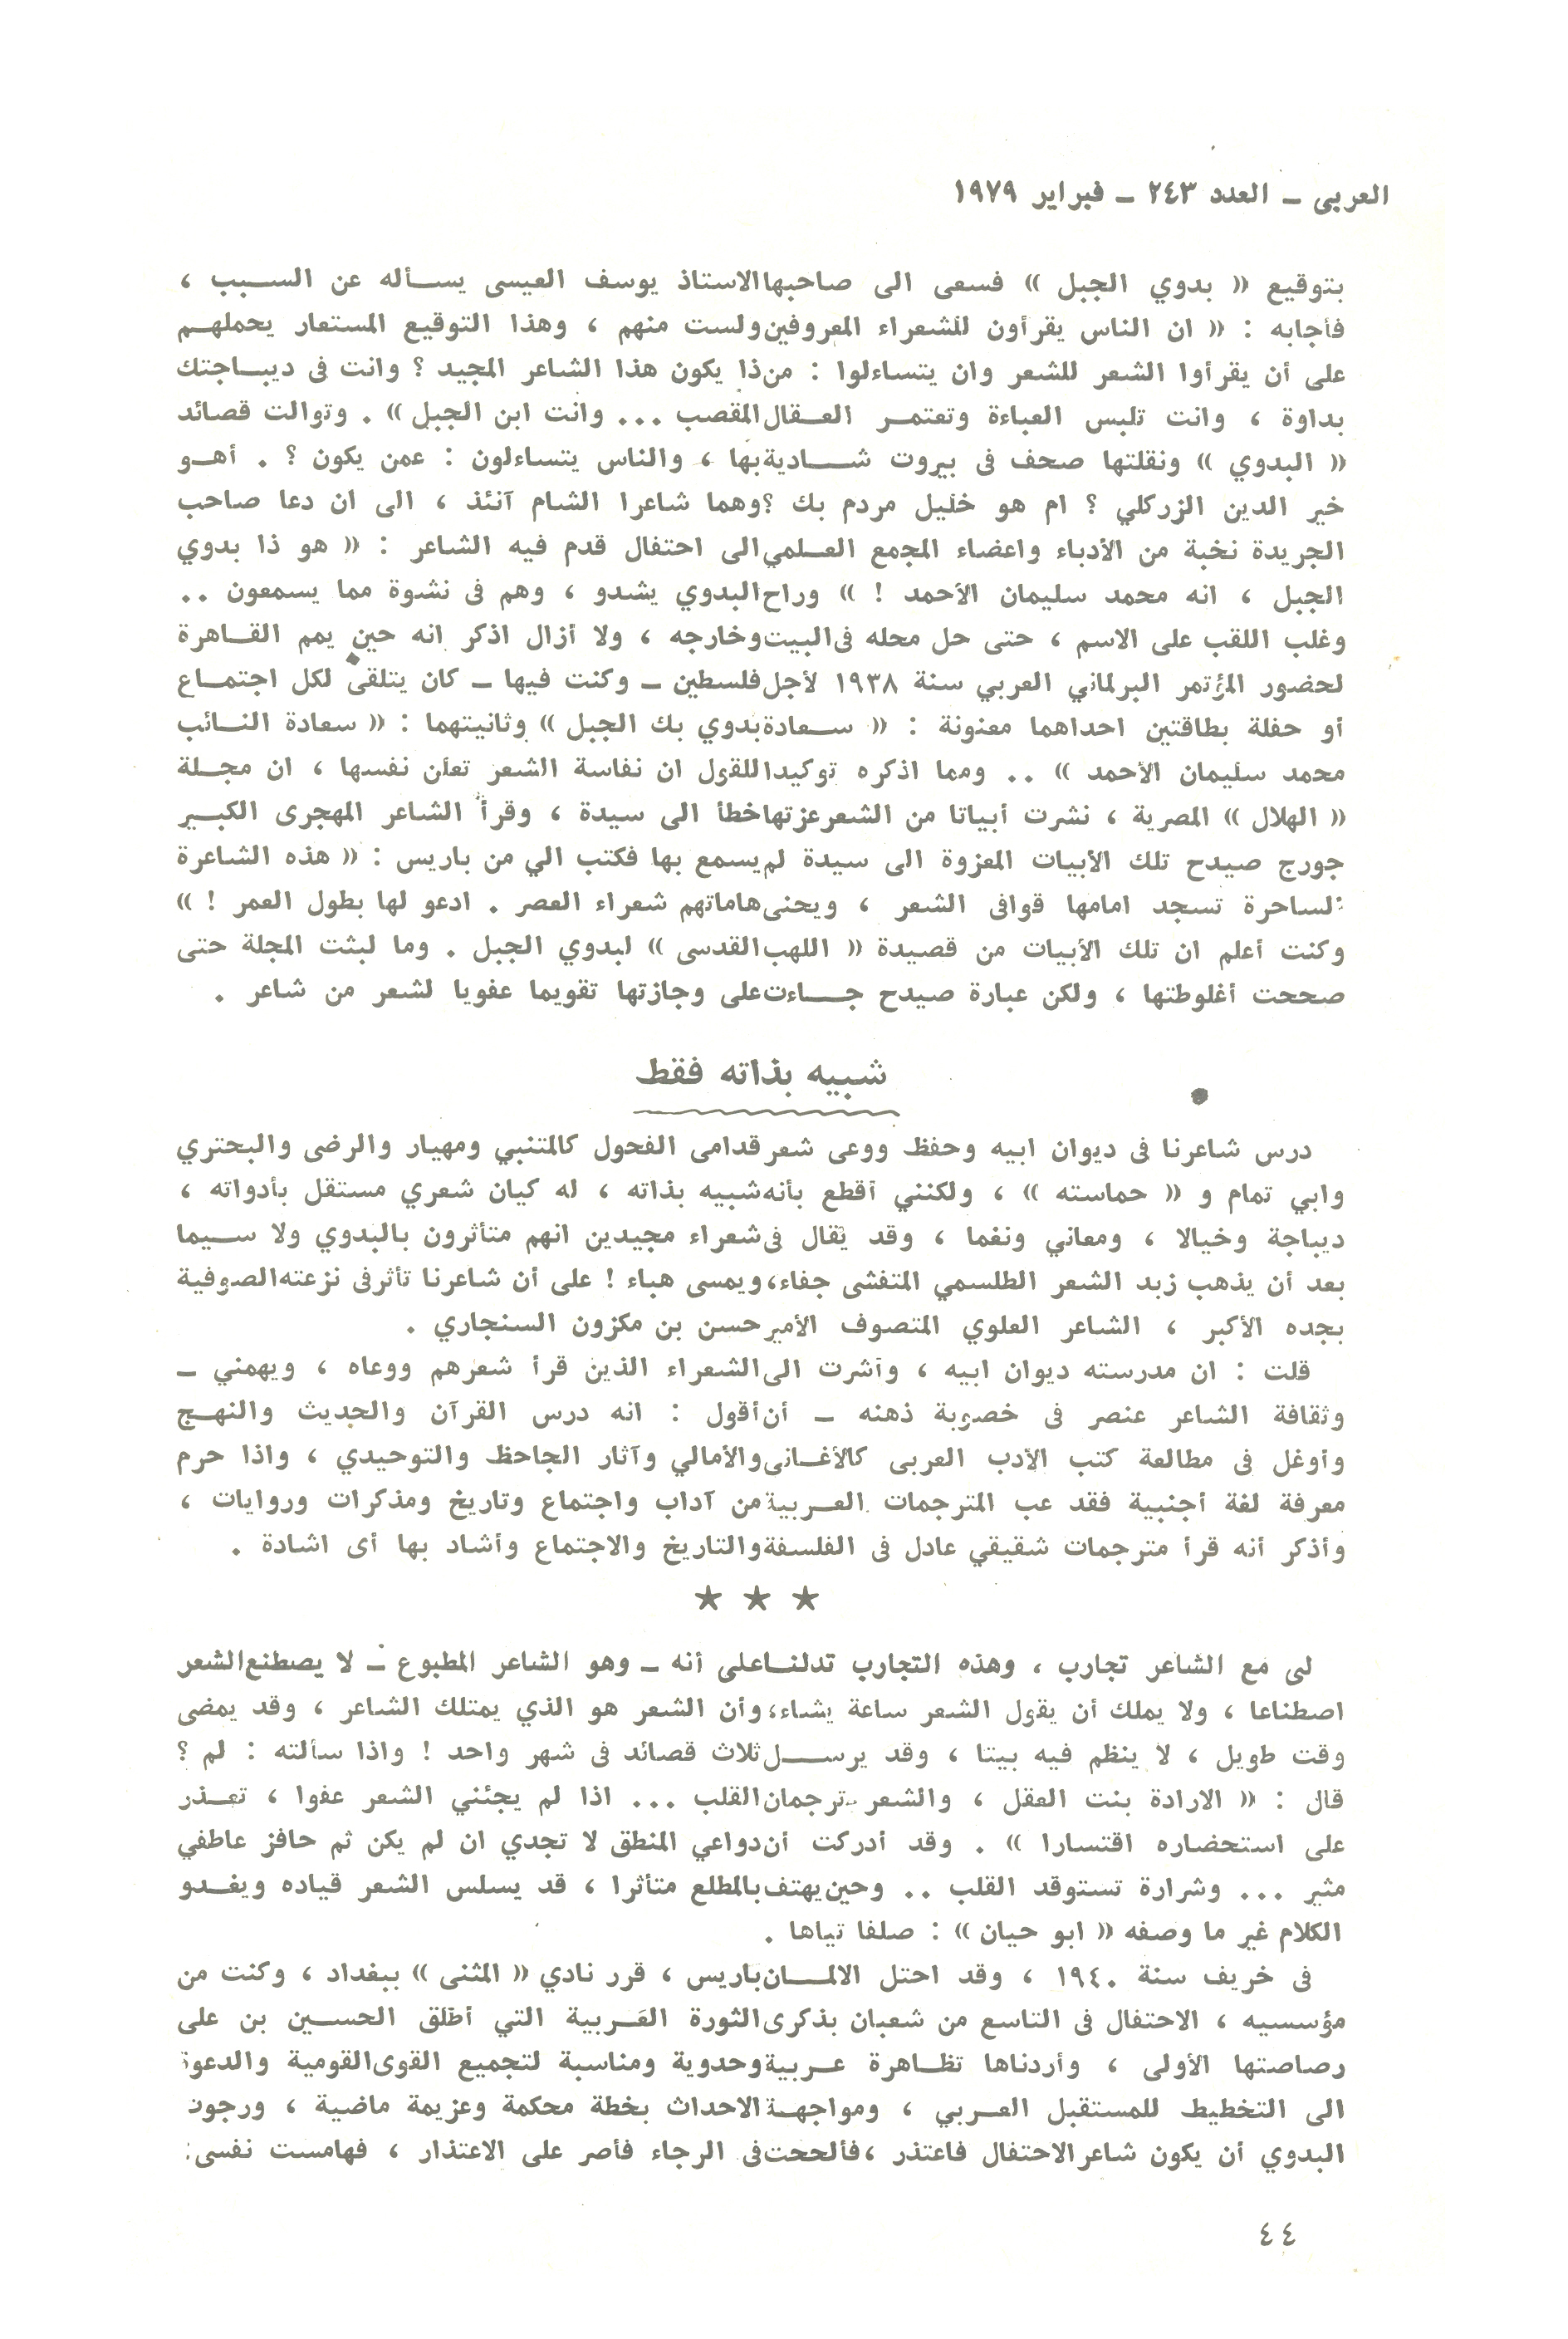 العربى ــ العدد ٢٤٣ ــ فبراير ١٩٧٩
بتوقيع « بدوي الجبل » فسعى الى صاحبها الاستاذ يوسف العيسى يسأله عن السبب ،
فأجابه : « ان الناس يقرأون للشعراء المعروفين ولست منهم ، وهذا التوقيع المستعار يحملهم
على أن يقرأوا الشعر للشعر وان يتساءلوا : من ذا يكون هذا الشاعر المجيد ؟ وانت فى ديباجتك
بداوة ، وانت تلبس العباءة وتعتمر العقال المقصب ... وانت ابن الجبل » . وتوالت قصائد
« البدوي » ونقلتها صحف فى بيروت شادية بها ، والناس يتساءلون : عمن يكون ؟ . أهو
خير الدين الزركلي ؟ ام هو خليل مردم بك ؟ وهما شاعرا الشام آنئذ ، الى ان دعا صاحب
الجريدة نخبة من الأدباء واعضاء المجمع العلمي الى احتفال قدم فيه الشاعر : « هو ذا بدوي
الجبل ، انه محمد سليمان الأحمد ! » وراح البدوي يشدو ، وهم فى نشوة مما يسمعون ..
وغلب اللقب على الاسم ، حتى حل محله فى البيت وخارجه ، ولا أزال اذكر انه حين يمم القاهرة
لحضور المؤتمر البرلماني العربي سنة ١٩٣٨ لأجل فلسطين ــ وكنت فيها ــ كان يتلقى لكل اجتماع
أو حفلة بطاقتين احداهما معنونة : « سعادة بدوي بك الجبل » وثانيتهما : « سعادة النائب
محمد سليمان الأحمد » .. ومما اذكره توكيدا للقول ان نفاسة الشعر تعلن نفسها ، ان مجلة
« الهلال » المصرية ، نشرت أبياتا من الشعر عزتها خطأ الى سيدة ، وقرأ الشاعر المهجرى الكبير
جورج صيدح تلك الأبيات المعزوة الى سيدة لم يسمع بها فكتب الي من باريس : « هذه الشاعرة
الساحرة تسجد امامها قوافى الشعر ، ويحنى هاماتهم شعراء العصر . ادعو لها بطول العمر ! »
وكنت أعلم ان تلك الأبيات من قصيدة « اللهب القدسى » لبدوي الجبل . وما لبثت المجلة حتى
صححت أغلوطتها ، ولكن عبارة صيدح جاءت على وجازتها تقويما عفويا لشعر من شاعر .
● شبيه بذاته فقط
درس شاعرنا فى ديوان ابيه وحفظ ووعى شعر قدامى الفحول كالمتنبي ومهيار والرضى والبحتري
وابي تمام و « حماسته » ، ولكنني أقطع بأنه شبيه بذاته ، له كيان شعري مستقل بأدواته ،
ديباجة وخيالا ، ومعاني ونغما ، وقد يقال فى شعراء مجيدين انهم متأثرون بالبدوي ولا سيما
بعد أن يذهب زبد الشعر الطلسمي المتفشى جفاء، ويمسى هباء ! على أن شاعرنا تأثر فى نزعته الصوفية
بجده الأكبر ، الشاعر العلوي المتصوف الأمير حسن بن مكزون السنجاري .
قلت : ان مدرسته ديوان ابيه ، وأشرت الى الشعراء الذين قرأ شعرهم ووعاه ، ويهمني ــ
وثقافة الشاعر عنصر فى خصوبة ذهنه ــ أن أقول : انه درس القرآن والحديث والنهج
وأوغل فى مطالعة كتب الأدب العربى كالأغانى والأمالي وآثار الجاحظ والتوحيدي ، واذا حرم
معرفة لغة أجنبية فقد عب المترجمات العربية من آداب واجتماع وتاريخ ومذكرات وروايات ،
وأذكر أنه قرأ مترجمات شقيقي عادل فى الفلسفة والتاريخ والاجتماع وأشاد بها أى اشادة .
★ ★ ★
لى مع الشاعر تجارب ، وهذه التجارب تدلنا على أنه ــ وهو الشاعر المطبوع ــ لا يصطنع الشعر
اصطناعا ، ولا يملك أن يقول الشعر ساعة يشاء، وأن الشعر هو الذي يمتلك الشاعر ، وقد يمضى
وقت طويل ، لا ينظم فيه بيتا ، وقد يرسل ثلاث قصائد فى شهر واحد ! واذا سألته : لم ؟
قال : « الارادة بنت العقل ، والشعر ترجمان القلب ... اذا لم يجئني الشعر عفوا ، تعذر
على استحضاره اقتسارا » . وقد أدركت أن دواعي المنطق لا تجدي ان لم يكن ثم حافز عاطفي
مثير ... وشرارة تستوقد القلب .. وحين يهتف بالمطلع متأثرا ، قد يسلس الشعر قياده ويغدو
الكلام غير ما وصفه « ابو حيان » : صلفا تياها .
فى خريف سنة ١٩٤٠ ، وقد احتل الالمان باريس ، قرر نادي « المثنى » ببغداد ، وكنت من
مؤسسيه ، الاحتفال فى التاسع من شعبان بذكرى الثورة العربية التي أطلق الحسين بن على
رصاصتها الأولى ، وأردناها تظاهرة عربية وحدوية ومناسبة لتجميع القوى القومية والدعوة
الى التخطيط للمستقبل العربي ، ومواجهة الاحداث بخطة محكمة وعزيمة ماضية ، ورجوت
البدوي أن يكون شاعر الاحتفال فاعتذر ، فألححت فى الرجاء فأصر على الاعتذار ، فهامست نفسى :
٤٤